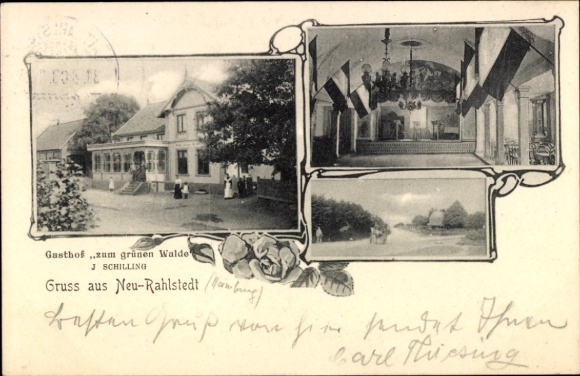 Gasthof „zum grünen Walde"
J SCHILLING
Gruss aus Neu-Rahlstedt (Hamburg)
Besten Gruß von hier sendet Ihnen
Carl Thiesing